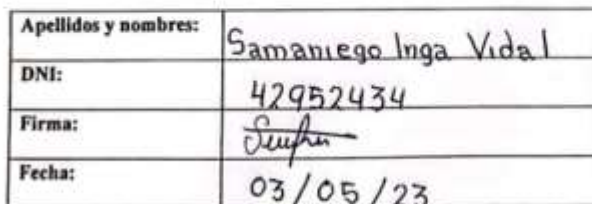 Apellidos y nombres: Samaniego Inga Vidal
DNI: 42952434
Firma:
Fecha: 03/05/23